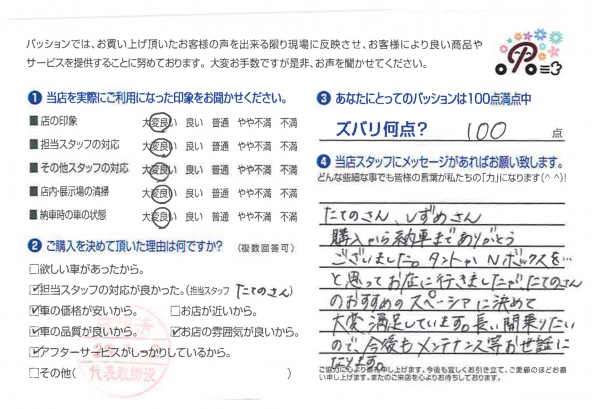 パッションでは、お買い上げ頂いたお客様の声を出来る限り現場に反映させ、お客様により良い商品や
サービスを提供することに努めております。大変お手数ですが是非、お声を聞かせてください。
❶ 当店を実際にご利用になった印象をお聞かせください。
■ 店の印象 大変良い 良い 普通 やや不満 不満
■ 担当スタッフの対応 大変良い 良い 普通 やや不満 不満
■ その他スタッフの対応 大変良い 良い 普通 やや不満 不満
■ 店内・展示場の清掃 大変良い 良い 普通 やや不満 不満
■ 納車時の車の状態 大変良い 良い 普通 やや不満 不満
❷ ご購入を決めて頂いた理由は何ですか? (複数回答可)
□欲しい車があったから。
☑担当スタッフの対応が良かった。(担当スタッフ たてのさん)
☑車の価格が安いから。 □お店が近いから。
☑車の品質が良いから。 ☑お店の雰囲気が良いから。
☑アフターサービスがしっかりしているから。
□その他( )
代表取締役
❸ あなたにとってのパッションは100点満点中
ズバリ何点? 100 点
❹ 当店スタッフにメッセージがあればお願い致します。
どんな些細な事でも皆様の言葉が私たちの「力」になります(^ ^)!
たてのさん、しずめさん
購入から納車までありがとう
ございました。タントかNボックスを…
と思ってお店に行きましたが「たてのさん
のおすすめのスペーシアに決めて
大変満足しています。長い間乗りたい
ので、今後もメンテナンス等お世話に
なります。
ご協力に心より御礼申し上げます。今後も宜しくお引き立て、ご愛顧のほどお願
い申し上げます。またのご来店を心よりお待ちしております。